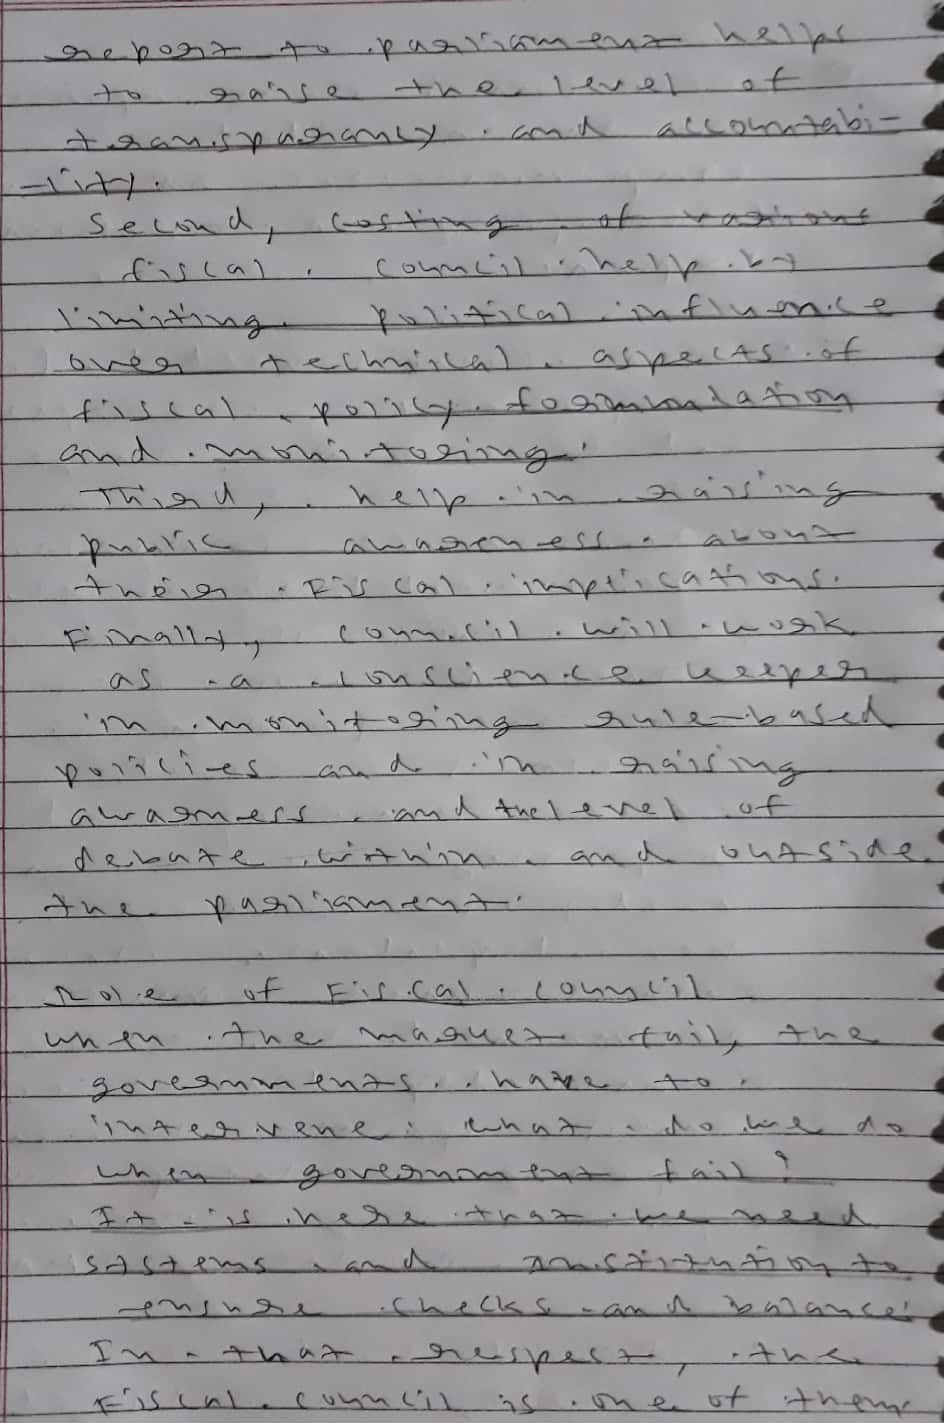 report to parliament helps
to raise the level of
transparancy and accountabi-
-lity.
Second, costing of various
fiscal council help by
limiting political influence
over technical aspects of
fiscal policy formulation
and monitoring.
Third, help in raising
public awareness about
their Fiscal implications.
Finally, council will work
as a conscience keeper
in monitoring rule-based
policies and in raising
awarness and the level of
debate within and outside
the parliament.
Role of Fiscal council
when the market fail, the
governments have to
intervene. what do we do
when government fail?
It is here that we need
systems and institution to
ensure checks and balance.
In that respect, the
Fiscal council is one of them.